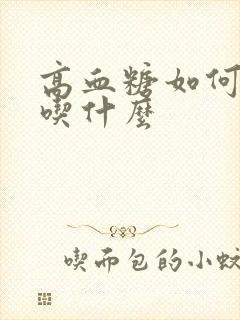 高血糖如何
喫什麼
喫而包的小蚊